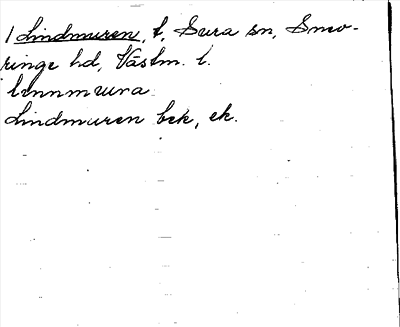 1 Lindmuren, t, Sura sn, Snev-
ringe hd, Västm. l.
lennmuura
Lindmuren bek, ek.